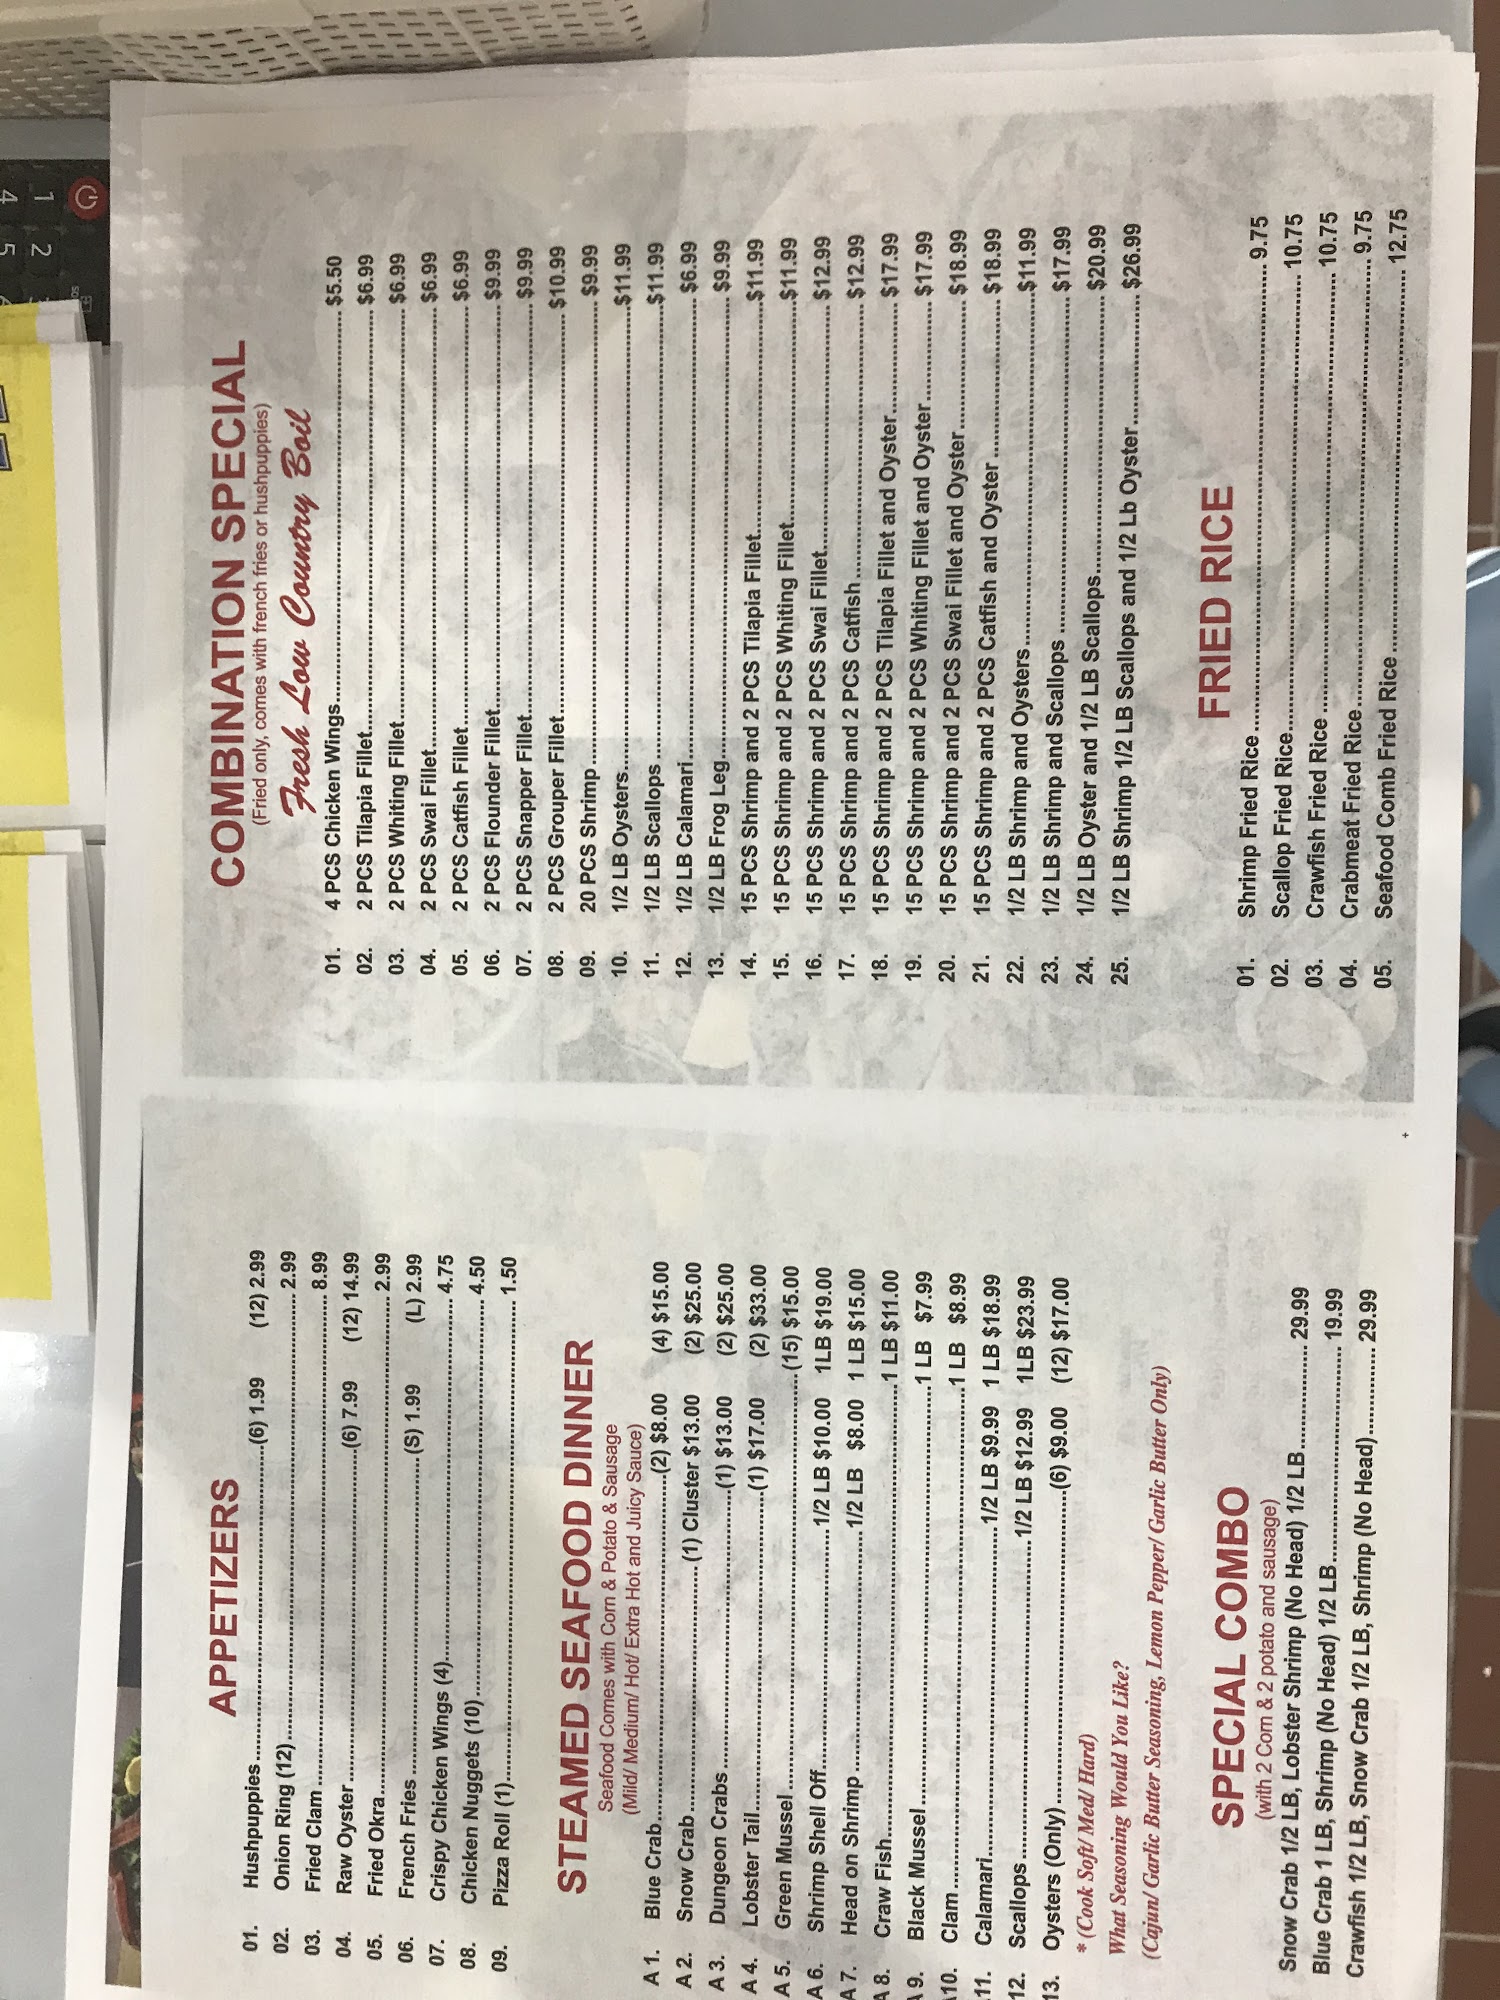 APPETIZERS
01. Hushpuppies (6) 1.99 (12) 2.99
02. Onion Ring (12) 2.99
03. Fried Clam 8.99
04. Raw Oyster (6) 7.99 (12) 14.99
05. Fried Okra 2.99
06. French Fries (S) 1.99 (L) 2.99
07. Crispy Chicken Wings (4) 4.75
08. Chicken Nuggets (10) 4.50
09. Pizza Roll (1) 1.50
STEAMED SEAFOOD DINNER
Seafood Comes with Corn & Potato & Sausage
(Mild/ Medium/ Hot/ Extra Hot and Juicy Sauce)
A 1. Blue Crab (2) $8.00 (4) $15.00
A 2. Snow Crab (1) Cluster $13.00 (2) $25.00
A 3. Dungeon Crabs (1) $13.00 (2) $25.00
A 4. Lobster Tail (1) $17.00 (2) $33.00
A 5. Green Mussel (15) $15.00
A 6. Shrimp Shell Off 1/2 LB $10.00 1LB $19.00
A 7. Head on Shrimp 1/2 LB $8.00 1 LB $15.00
A 8. Craw Fish 1 LB $11.00
A 9. Black Mussel 1 LB $7.99
A10. Clam 1 LB $8.99
11. Calamari 1/2 LB $9.99 1 LB $18.99
12. Scallops 1/2 LB $12.99 1LB $23.99
13. Oysters (Only) (6) $9.00 (12) $17.00
* (Cook Soft/ Med/ Hard)
What Seasoning Would You Like?
(Cajun/ Garlic Butter Seasoning, Lemon Pepper/ Garlic Butter Only)
SPECIAL COMBO
(with 2 Corn & 2 potato and sausage)
Snow Crab 1/2 LB, Lobster Shrimp (No Head) 1/2 LB 29.99
Blue Crab 1 LB, Shrimp (No Head) 1/2 LB 19.99
Crawfish 1/2 LB, Snow Crab 1/2 LB, Shrimp (No Head) 29.99
COMBINATION SPECIAL
(Fried only, comes with french fries or hushpuppies)
Fresh Low Country Boil
01. 4 PCS Chicken Wings $5.50
02. 2 PCS Tilapia Fillet $6.99
03. 2 PCS Whiting Fillet $6.99
04. 2 PCS Swai Fillet $6.99
05. 2 PCS Catfish Fillet $6.99
06. 2 PCS Flounder Fillet $9.99
07. 2 PCS Snapper Fillet $9.99
08. 2 PCS Grouper Fillet $10.99
09. 20 PCS Shrimp $9.99
10. 1/2 LB Oysters $11.99
11. 1/2 LB Scallops $11.99
12. 1/2 LB Calamari $6.99
13. 1/2 LB Frog Leg $9.99
14. 15 PCS Shrimp and 2 PCS Tilapia Fillet $11.99
15. 15 PCS Shrimp and 2 PCS Whiting Fillet $11.99
16. 15 PCS Shrimp and 2 PCS Swai Fillet $12.99
17. 15 PCS Shrimp and 2 PCS Catfish $12.99
18. 15 PCS Shrimp and 2 PCS Tilapia Fillet and Oyster $17.99
19. 15 PCS Shrimp and 2 PCS Whiting Fillet and Oyster $17.99
20. 15 PCS Shrimp and 2 PCS Swai Fillet and Oyster $18.99
21. 15 PCS Shrimp and 2 PCS Catfish and Oyster $18.99
22. 1/2 LB Shrimp and Oysters $11.99
23. 1/2 LB Shrimp and Scallops $17.99
24. 1/2 LB Oyster and 1/2 LB Scallops $20.99
25. 1/2 LB Shrimp 1/2 LB Scallops and 1/2 Lb Oyster $26.99
FRIED RICE
01. Shrimp Fried Rice 9.75
02. Scallop Fried Rice 10.75
03. Crawfish Fried Rice 10.75
04. Crabmeat Fried Rice 9.75
05. Seafood Comb Fried Rice 12.75
1 2
4 5